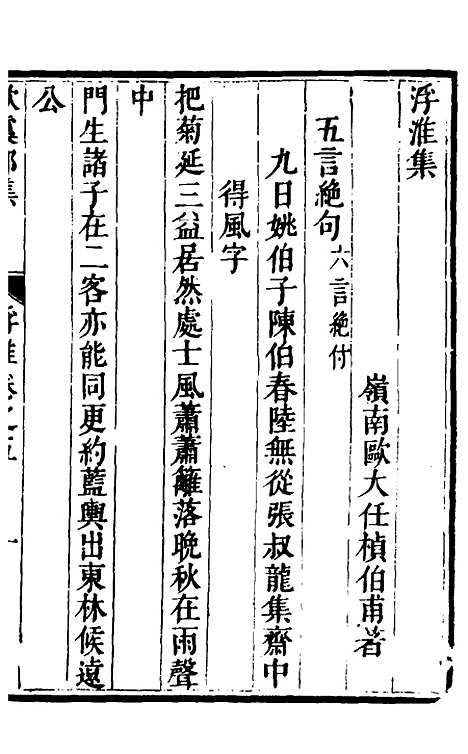 浮淮集
嶺南歐大任楨伯甫著
五言絕句六言絕付
九日姚伯子陳伯春陸無從張叔龍集齋中
得風字
把菊延三益居然處士風蕭蕭籬落晚秋在雨聲
中
門生諸子在二客亦能同更約藍輿出東林候遠
公